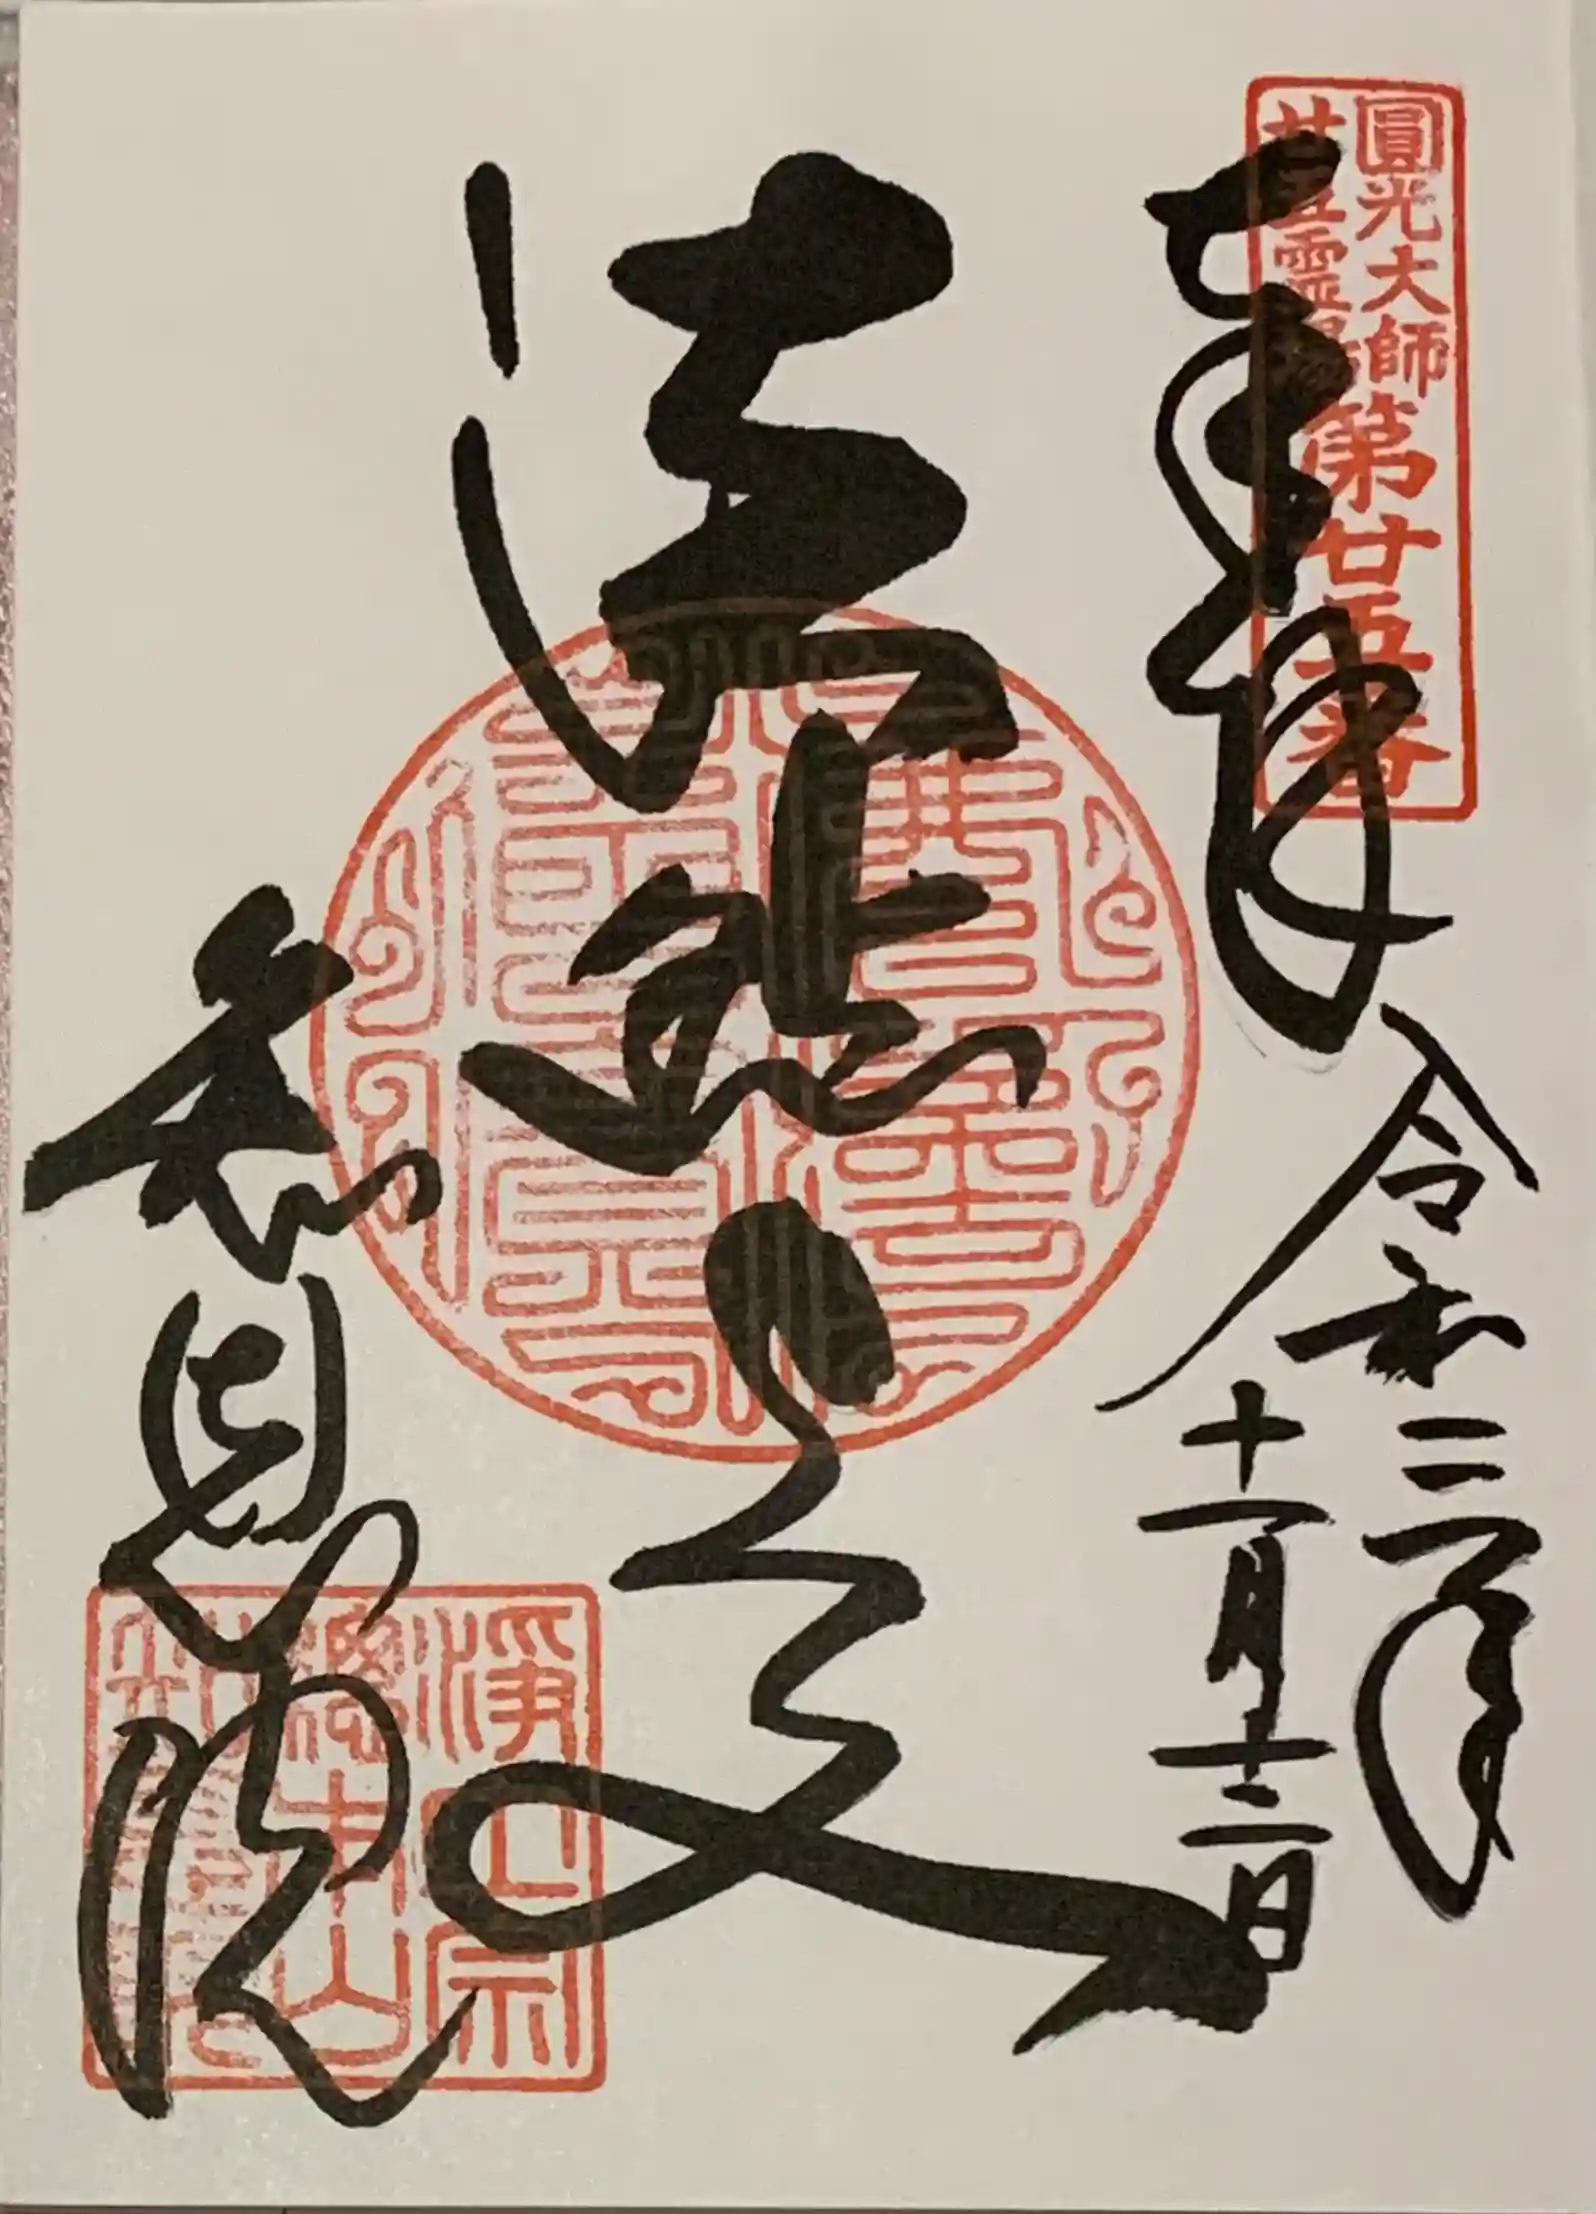 圓光大師
廿五霊場
第廿五番
奉拝
令和二年
十一月十二日
法然上人
知恩院
淨土宗
總本山
知恩院